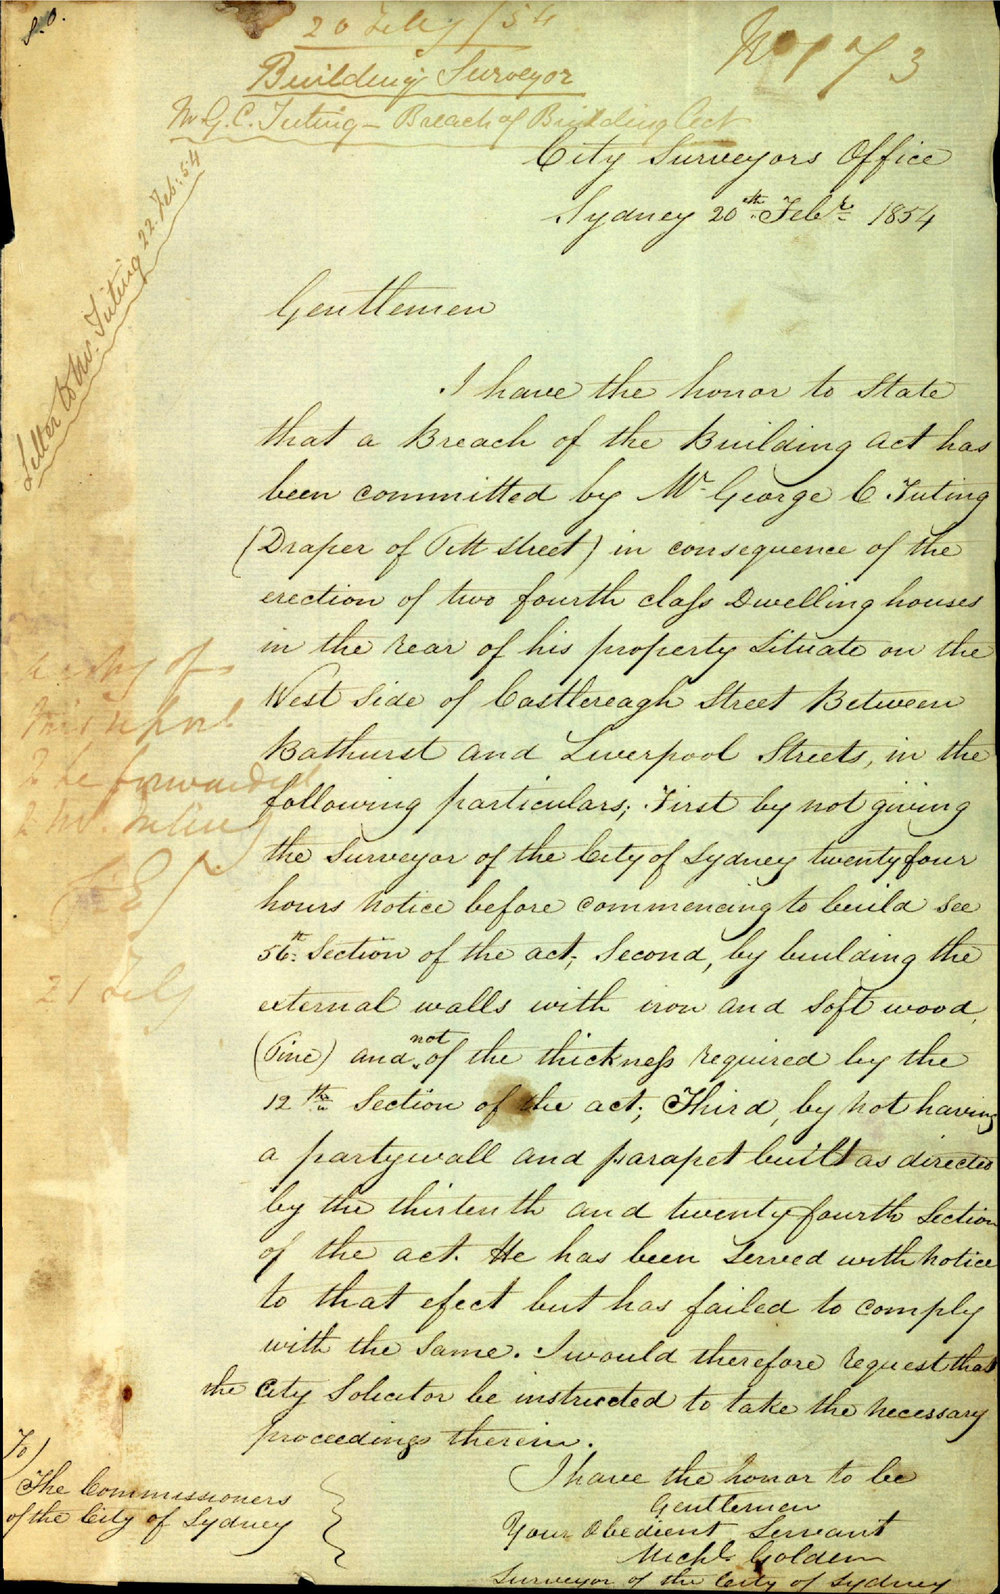 S.O.
20 Feby /54
No 173
Building Surveyor
Mr G.C. Tuting - Breach of Building Act
City Surveyors Office
Sydney 20th Febr 1854
Letter to Mr. Tuting 22. Feb: 54
Gentlemen
I have the honor to State
that a Breach of the Building Act has
been committed by Mr George C. Tuting
(Draper of Pitt Street) in consequence of the
erection of two fourth class Dwelling houses
in the rear of his property Situate on the
West Side of Castlereagh Street Between
Bathurst and Liverpool Streets, in the
following particulars; First by not giving
the Surveyor of the City of Sydney twenty four
hours notice before commencing to build See
56th Section of the act; Second, by building the
external walls with iron and Soft wood,
(Pine) and not of the thickness required by the
12th Section of the act; Third, by not having
a partywall and parapet built as directed
by the thirteenth and twenty fourth Section
of the act. He has been Served with notice
to that efect but has failed to comply
with the Same. I would therefore request that
the City Solicitor be instructed to take the necessary
proceedings therein.
I have the honor to be
Gentlemen
Your Obedient Servant
Michl Golden
Surveyor of the City of Sydney
A copy of
this report
to be forwarded
to Mr. Tuting
21 Feby
To
The Commissioners
of the City of Sydney